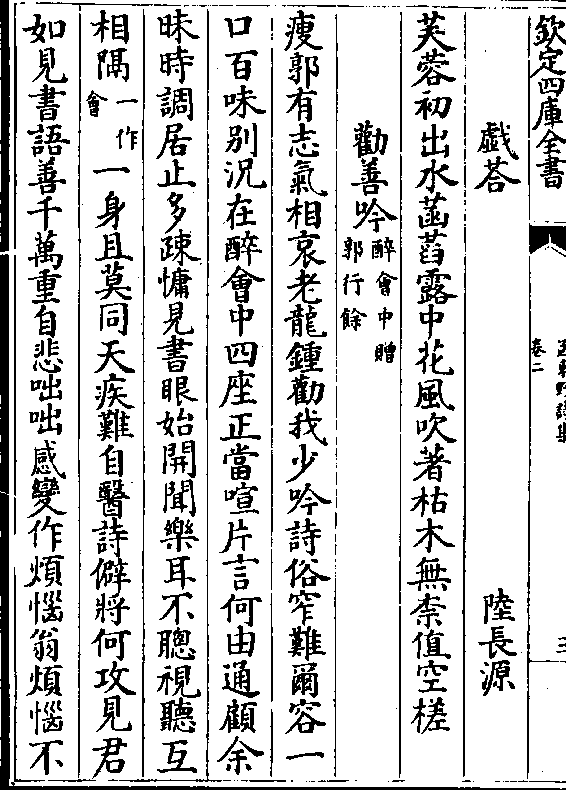 欽定四庫全書
卷二
三
戲荅
陸長源
芙蓉初出水菡萏露中花風吹著枯木無柰值空槎
勸善吟醉會中贈郭行餘
瘦郭有志氣相哀老龍鍾勸我少吟詩俗窄難爾容一
口百味别況在醉會中四座正當喧片言何由通顧余
昧時調居止多疎慵見書眼始開聞樂耳不聰視聽互
相隔一作會一身且莫同天疾難自醫詩僻將何攻見君
如見書語善千萬重自悲咄咄感變作煩惱翁煩惱不